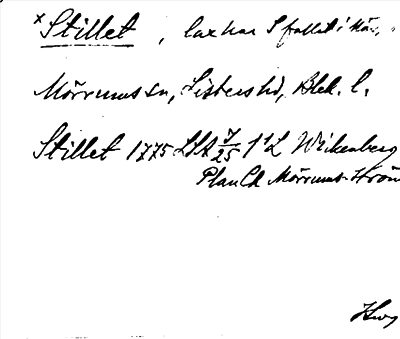 x Stillet, laxkar S fallet i Mör
Mörrums sn, Listers hd, Blek. l.
Stillet 1775 LSA 7/25 1¹ L Wikenberg
Plan Ch Mörrums Ström